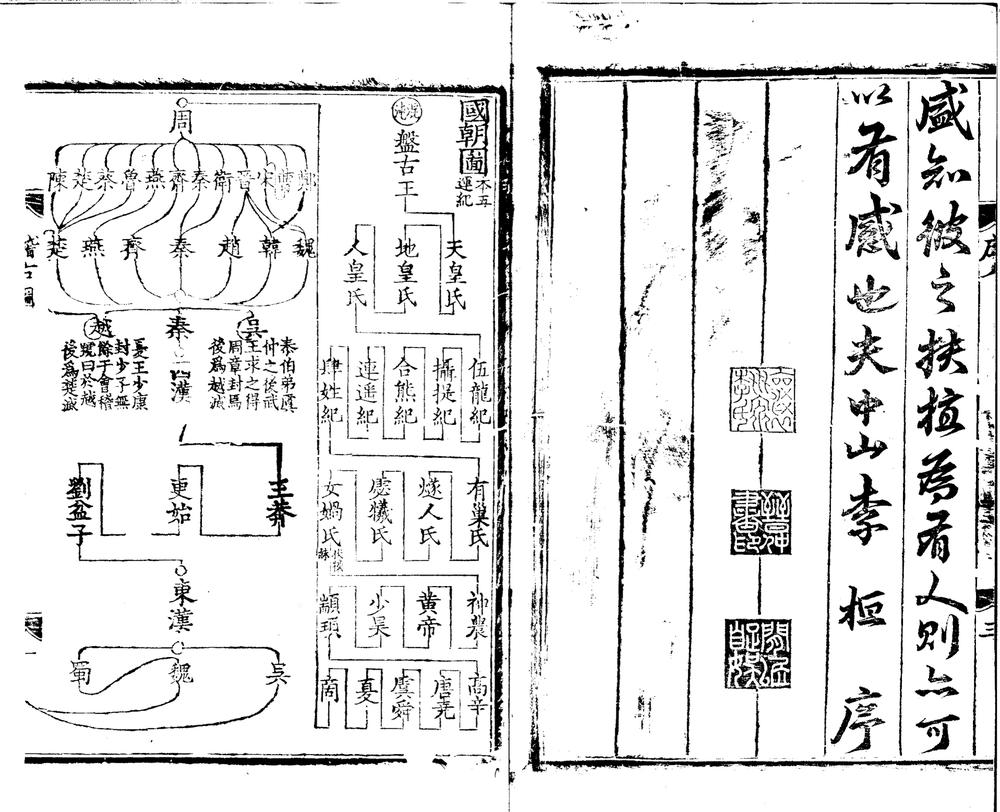 感知彼之扶植為有人則亦可
以有感也夫中山李桓序
三
國朝圖
本五
運紀
混沌
盤古王
天皇氏
地皇氏
人皇氏
伍龍紀
攝提紀
合熊紀
連逓紀
肆姓紀
有巢氏
燧人氏
虙犧氏
女媧氏
神農
黃帝
少昊
顓頊
高辛
唐堯
虞舜
夏
商
周
宋
晉
衛
秦
齊
燕
魯
蔡
楚
陳
魏
韓
趙
秦
齊
燕
楚
吳
泰伯弟虞
仲之後武
王求之得
周章封焉
後爲越滅
秦
西漢
越
夏王少康
封少子無
餘于會稽
號曰於越
後爲楚滅
王莽
更始
劉盆子
東漢
吳
魏
蜀